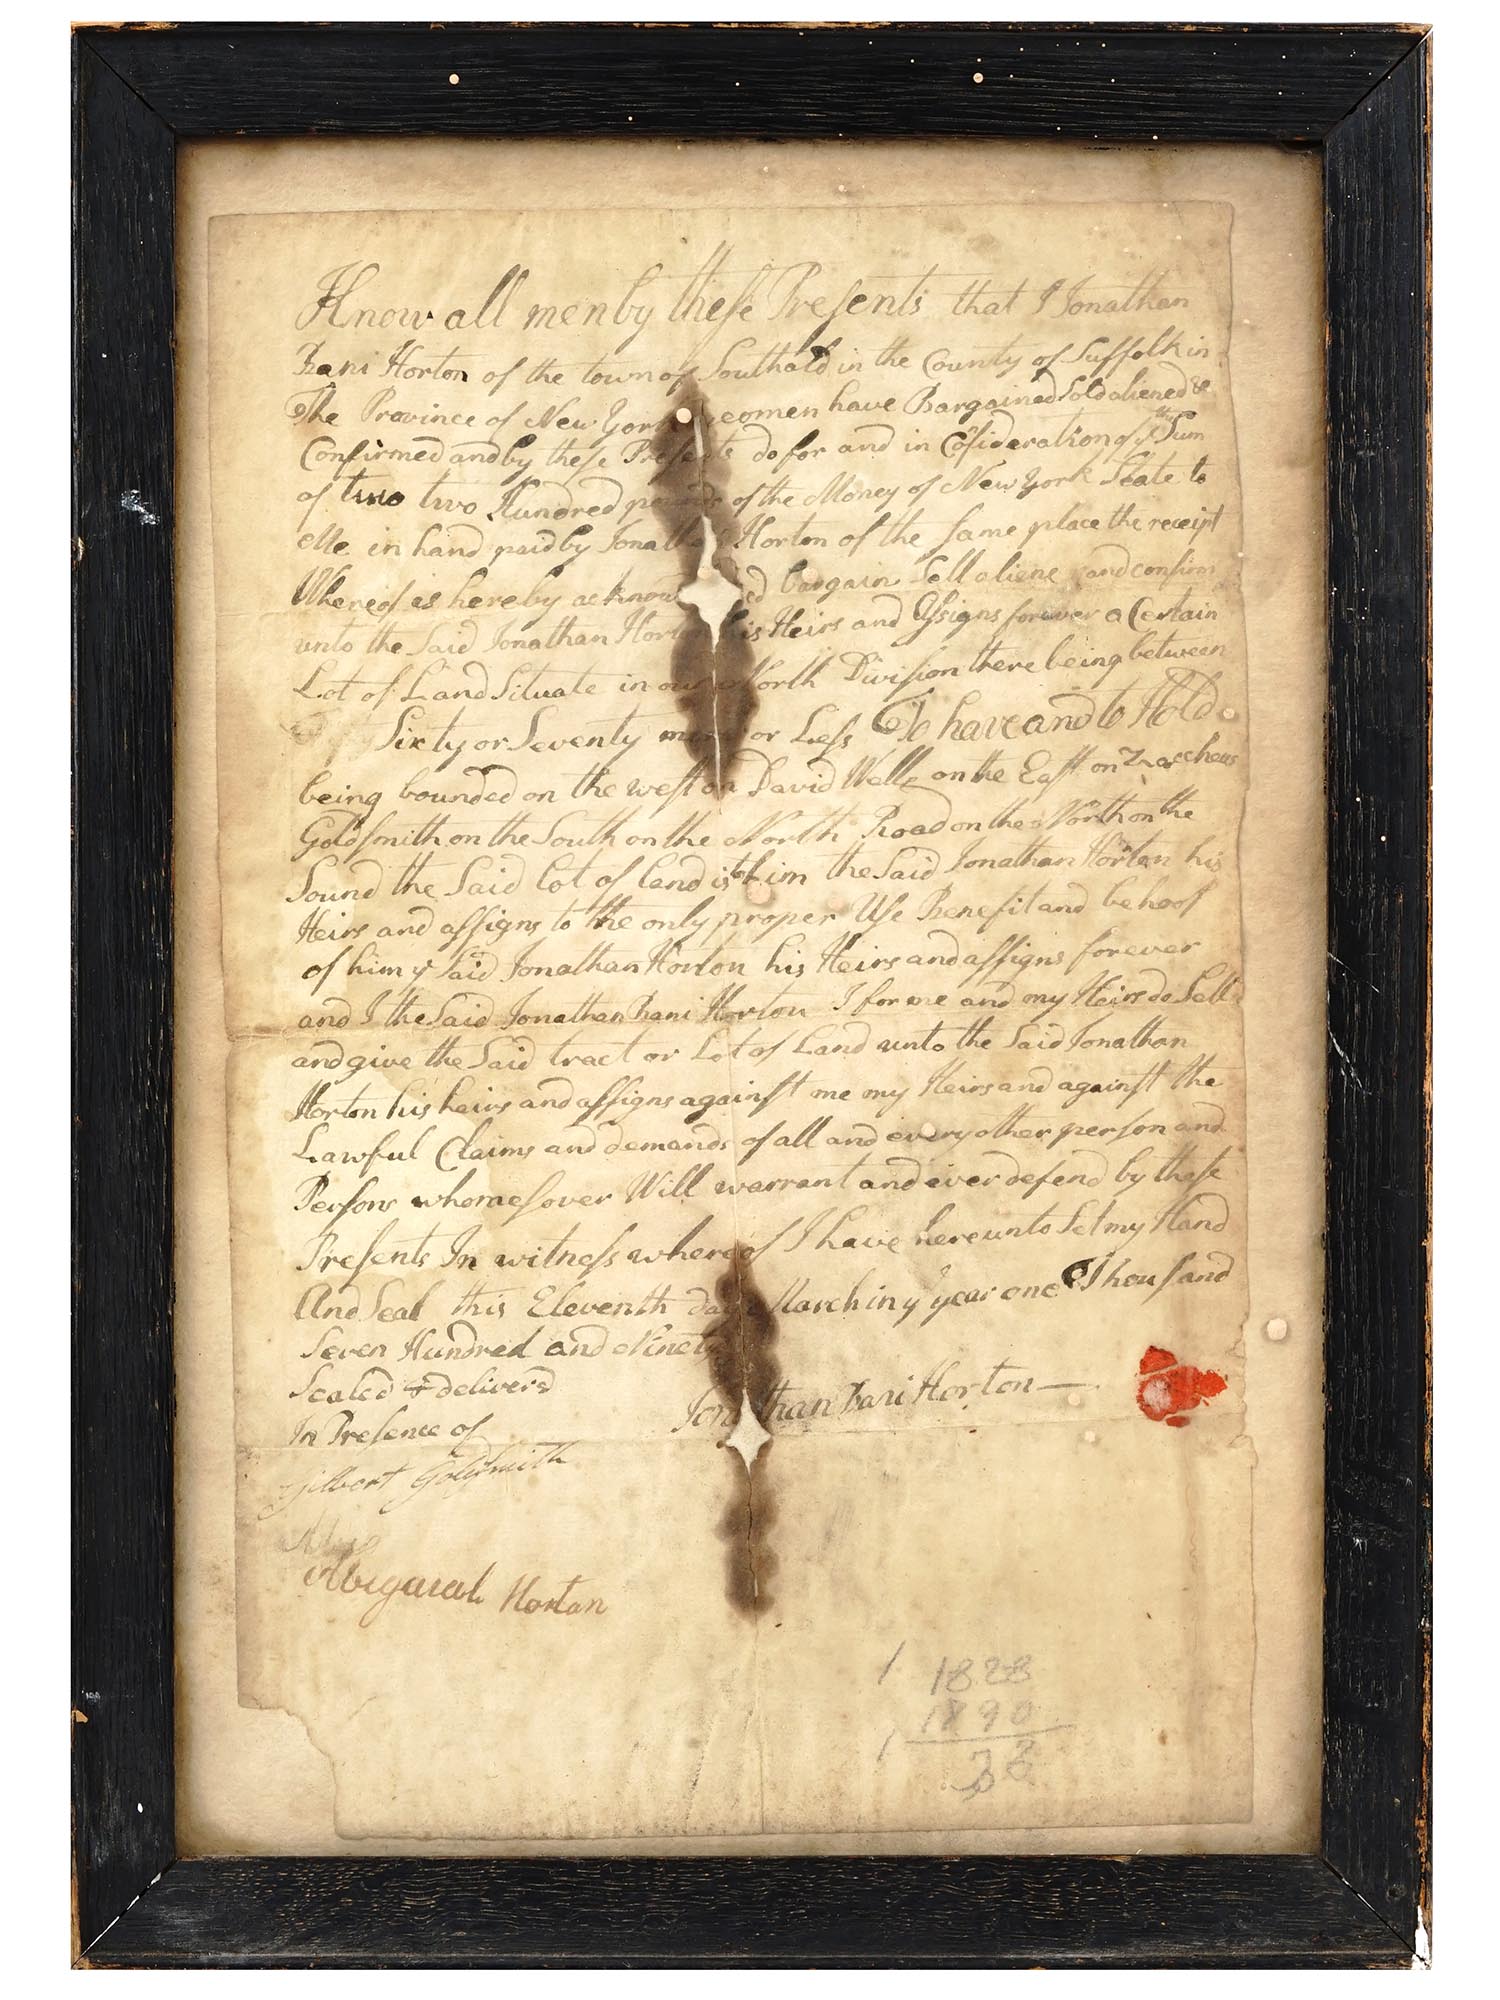 Know all men by these Presents that I Jonathan
Bani Horton of the town of Southald in the County of Suffolk in
The Province of New York yeomen have Bargained Sold aliened &
Confirmed and by these Presents do for and in Cosideration of ye Sum
of two two Hundred pounds of the Money of New York State to
Me in hand paid by Jonathan Horton of the same place the receipt
Whereof is hereby acknow ed bargain Sell aliene and confirm
unto the Said Jonathan Horton his Heirs and Assigns forever a Certain
Lot of Land Situate in our North Division there being between
Sixty or Seventy more or Less To have and to Hold
being bounded on the west on David Wells on the East on Zaccheus
Goldsmith on the South on the North Road on the North on the
Sound the Said lot of land is to him the Said Jonathan Horton his
Heirs and assigns to the only proper Use Benefit and behoof
of him ye Said Jonathan Horton his Heirs and assigns forever
and I the Said Jonathan Bani Horton I for me and my Heirs do Sell
and give the Said tract or Lot of Land unto the Said Jonathan
Horton his heirs and assigns against me my Heirs and against the
Lawful Claims and demands of all and every other person and
Persons whomesover Will warrant and ever defend by these
Presents In witness whereof I have hereunto Set my Hand
And Seal this Eleventh day March in y year one Thousand
Seven Hundred and Ninety
Sealed & deliverd
In Presence of
Jonathan Bani Horton
Gilbert Goldsmith
Abigaial Hortan
1 1828
1890
1 38